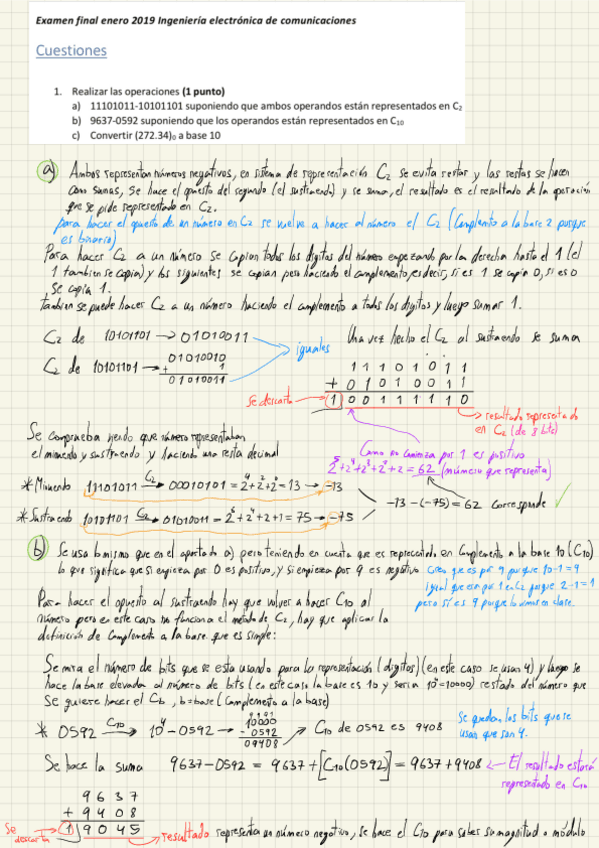 Examen final enero 2019 Ingeniería electrónica de comunicaciones
Cuestiones
1. Realizar las operaciones (1 punto)
a) 11101011-10101101 suponiendo que ambos operandos están representados en C₂
b) 9637-0592 suponiendo que los operandos están representados en C₁₀
c) Convertir (272.34)₉ a base 10
a) Ambos representan números negativos, en sistema de representación C₂ se evita restar y las restas se hacen
como sumas, Se hace el opuesto del segundo (el sustraendo) y se suma, el resultado es el resultado de la operación
que se pide representado en C₂.
para hacer el opuesto de un número en C₂ se vuelve a hacer al número el C₂ (Complemento a la base 2 porque
es binario)
Para hacer C₂ a un número se copian todos los dígitos del número empezando por la derecha hasta el 1 (el
1 también se copia) y los siguientes se copian pero haciendo el complemento, es decir, si es 1 se copia 0, si es 0
se copia 1.
También se puede hacer C₂ a un número haciendo el complemento a todos los dígitos y luego sumar 1.
C₂ de 10101101 → 01010011
C₂ de 10101101 → 01010010
+ 1
01010011
iguales
Una vez hecho el C₂ al sustraendo se suma
11101011
+ 01010011
Se descarta 1 00111110
resultado representado
en C₂ (de 8 bits)
Se comprueba viendo que número representaban
el minuendo y sustraendo y haciendo una resta decimal
Como no comienza por 1 es positivo
2⁵+2⁴+2³+2²+2 = 62 (número que representa)
* Minuendo 11101011 C₂→ 00010101 = 2⁴+2²+2⁰=13 → -13
* Sustraendo 10101101 C₂→ 01010011 = 2⁶+2⁴+2+1 = 75 → -75
-13-(-75) = 62 Corresponde ✓
b) Se usa lo mismo que en el apartado a) pero teniendo en cuenta que es representado en Complemento a la base 10 (C₁₀)
lo que significa que si empieza por 0 es positivo, y si empieza por 9 es negativo
Creo que es por 9 porque 10-1=9
igual que era por 1 en C₂ porque 2-1=1
pero sí es 9 porque lo vimos en clase.
Para hacer el opuesto al sustraendo hay que volver a hacer C₁₀ al
número pero en este caso no funciona el método de C₂, hay que aplicar la
definición de Complemento a la base que es simple:
Se mira el número de bits que se esta usando para la representación (dígitos) (en este caso se usan 4) y luego se
hace la base elevada al número de bits (en este caso la base es 10 y seria 10⁴=10000) restado del número que
Se quiere hacer el Cb, b=base (Complemento a la base)
* 0592 C₁₀→ 10⁴-0592 →
10000
-0592
09408
→ C₁₀ de 0592 es 9408
Se quedan los bits que se
usan que son 4.
Se hace la suma 9637-0592 = 9637+[C₁₀(0592)] = 9637+9408
← El resultado estará
representado en C₁₀
9637
+ 9408
Se descarta 1 9045 → resultado representa un número negativo, se hace el C₁₀ para saber su magnitud o módulo